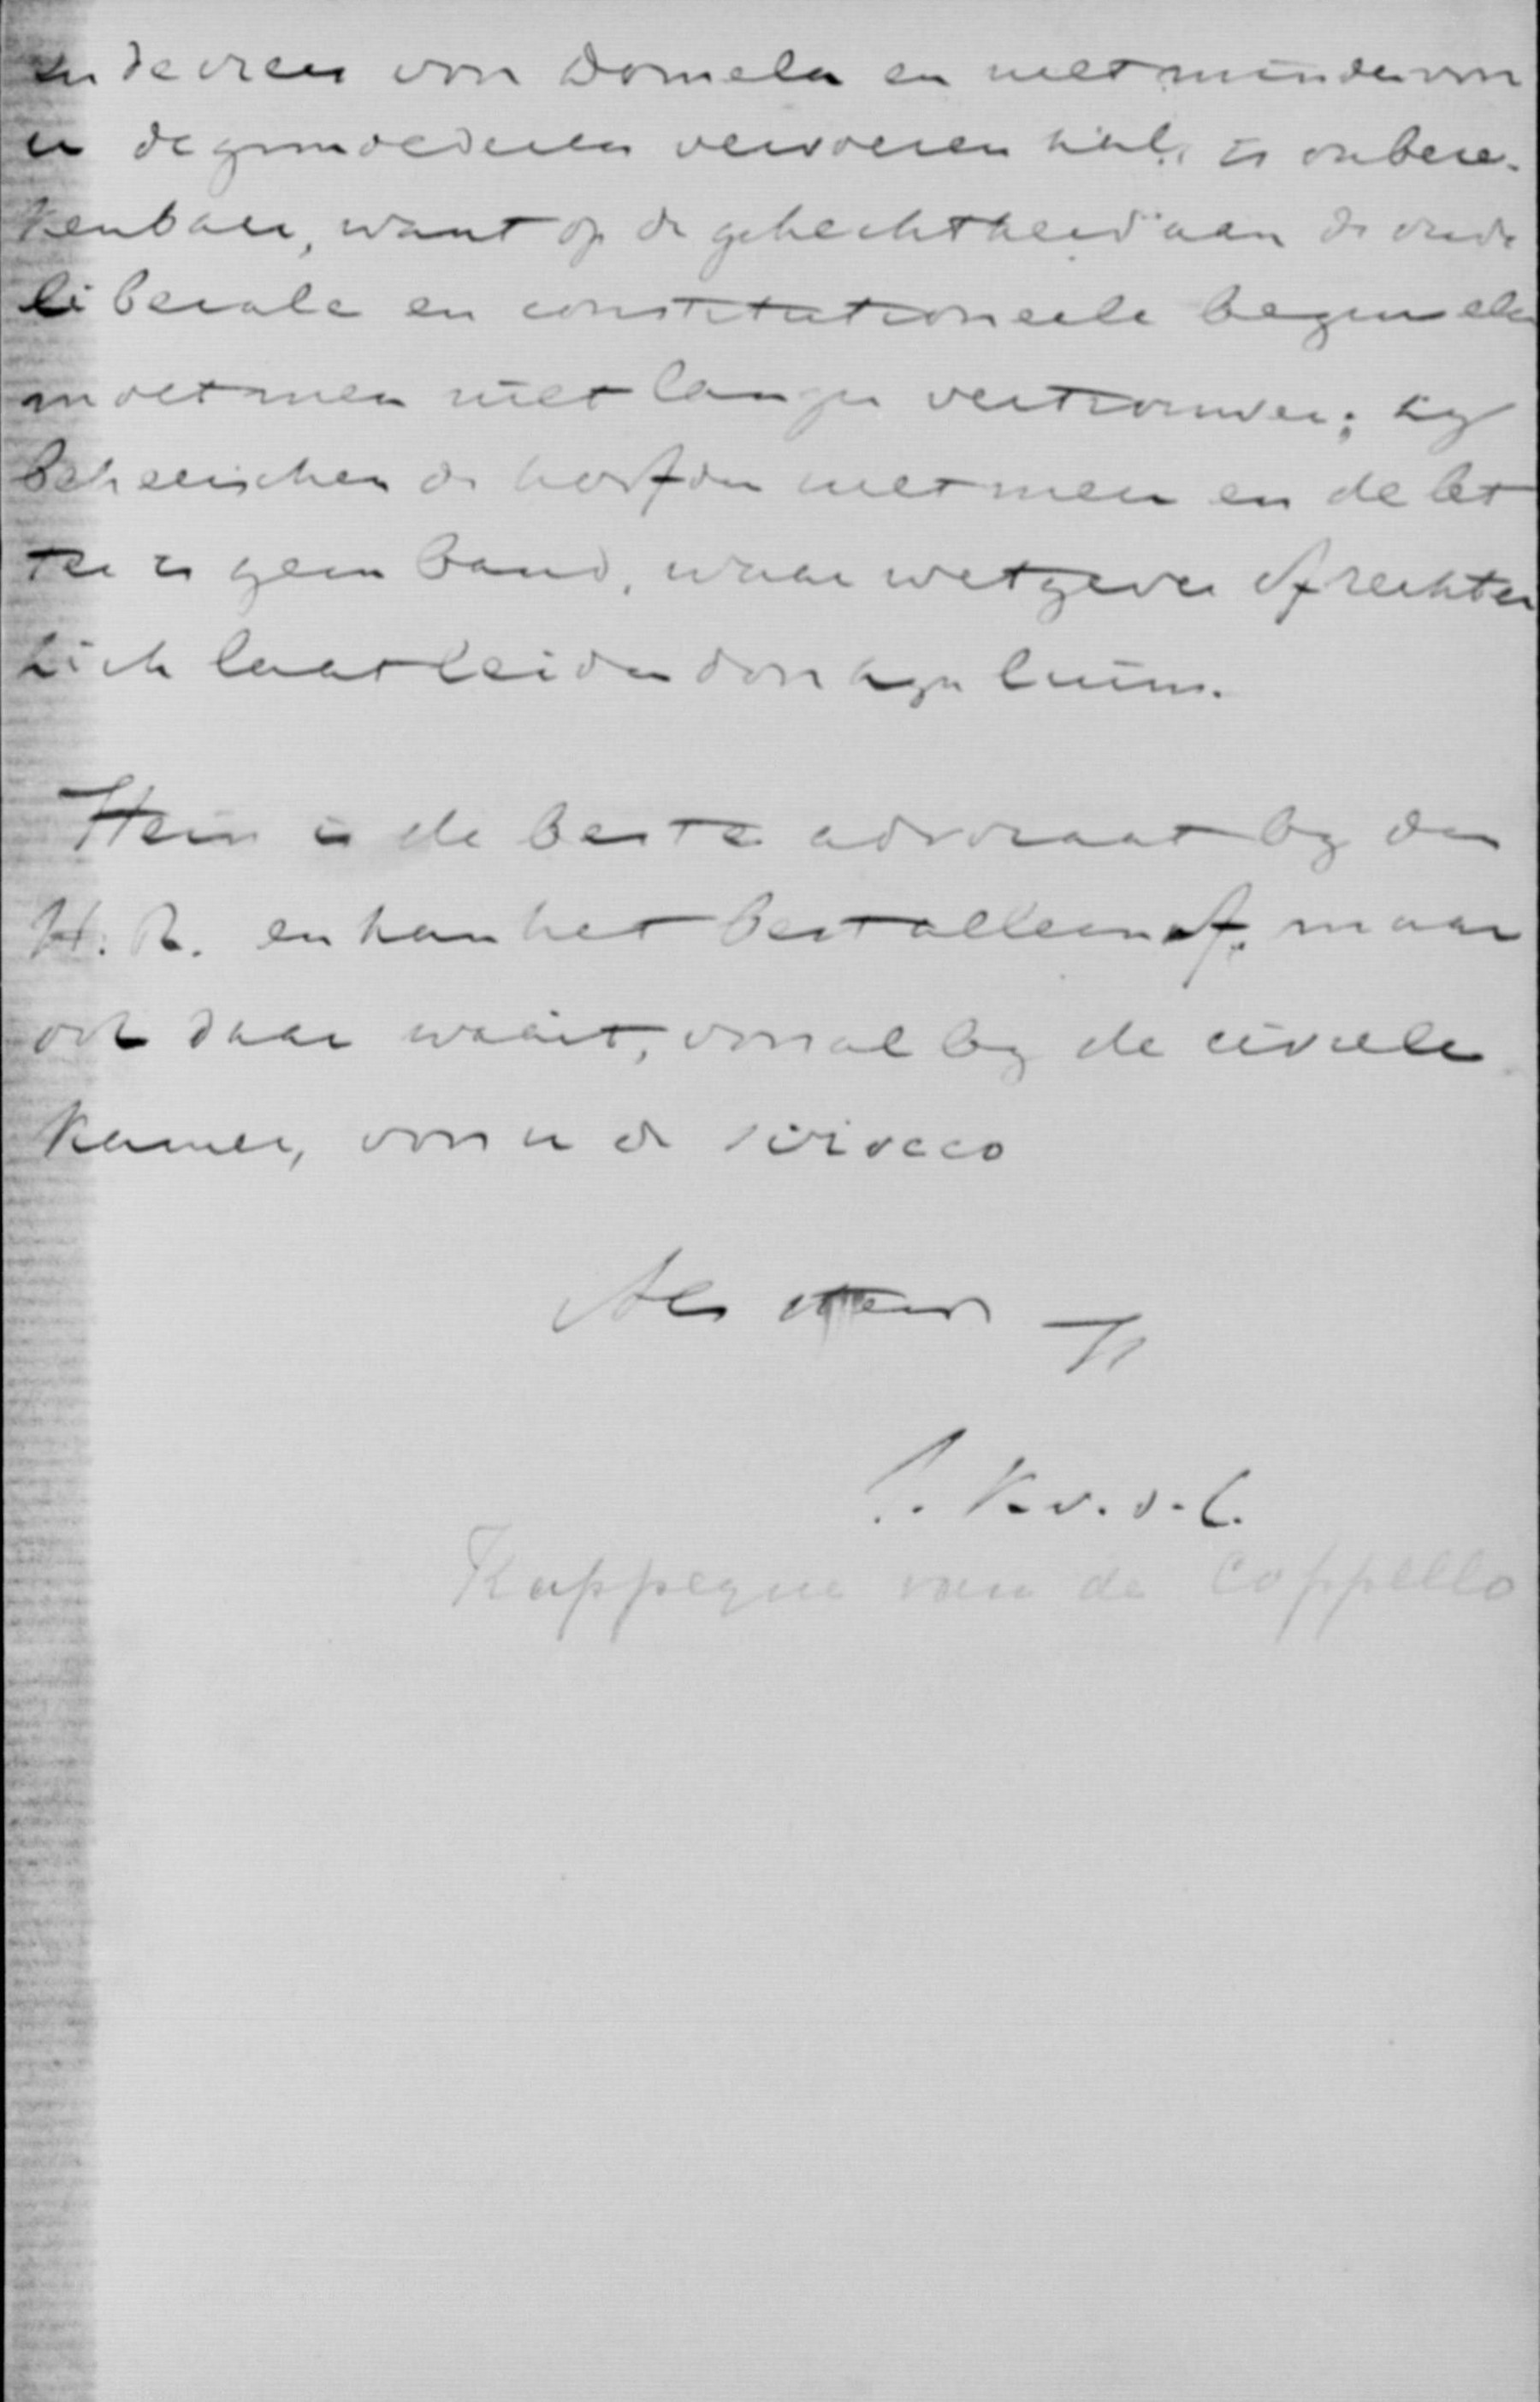 de vrees voor Domela en niet minder voor
u de gemoederen vervoeren zal, is onbere-
kenbaar, want op de gehechtheid aan de oude
liberale en constitutioneele beginselen
moet men niet langer vertrouwen; zij
beheerschen de hoofden niet meer en de let
ter is geen band, waar wetgever of rechter
zich laat leiden door zijn luim.
Hein is de beste advocaat bij den
H. R. en kan het best alleen af, maar
ook daar waait, vooral bij de civiele
kamer, voor u de sirocco
Als steeds
tt
K. v. d. C.
Kappeyne van de Coppello